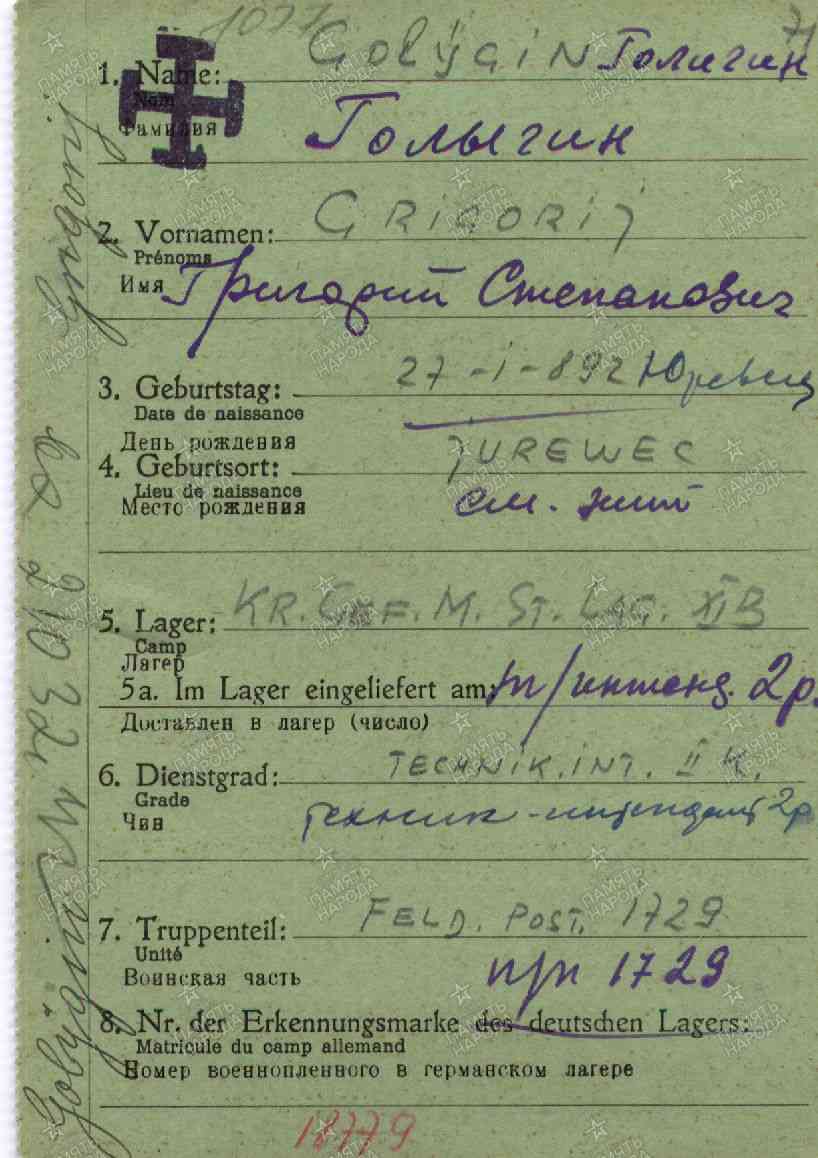 1077
71
Golÿgin Голигин
1. Name:
Nom
Фамилия
Голыгин
Grigorij
2. Vornamen:
Prénoms
Имя Григорий Степанович
27-I-892 Юревец
3. Geburtstag:
Date de naissance
День рождения
JUREWEC
4. Geburtsort:
Lieu de naissance
Место рождения
см.
KR. GEF. M. ST. LAG. XI B
5. Lager:
Camp
Лагерь
5a. Im Lager eingeliefert am: т/интенд. 2р.
Доставлен в лагер (число)
TECHNIK. INT. II K.
6. Dienstgrad:
Grade
Чин
техник-интендант 2р
FELD. POST. 1729
7. Truppenteil:
Unité
Воинская часть
п/п 1729
8. Nr. der Erkennungsmarke des deutschen Lagers:
Matricule du camp allemand
Номер военнопленного в германском лагере
18779
Golÿgin
Grigorij
ПАМЯТЬ НАРОДА